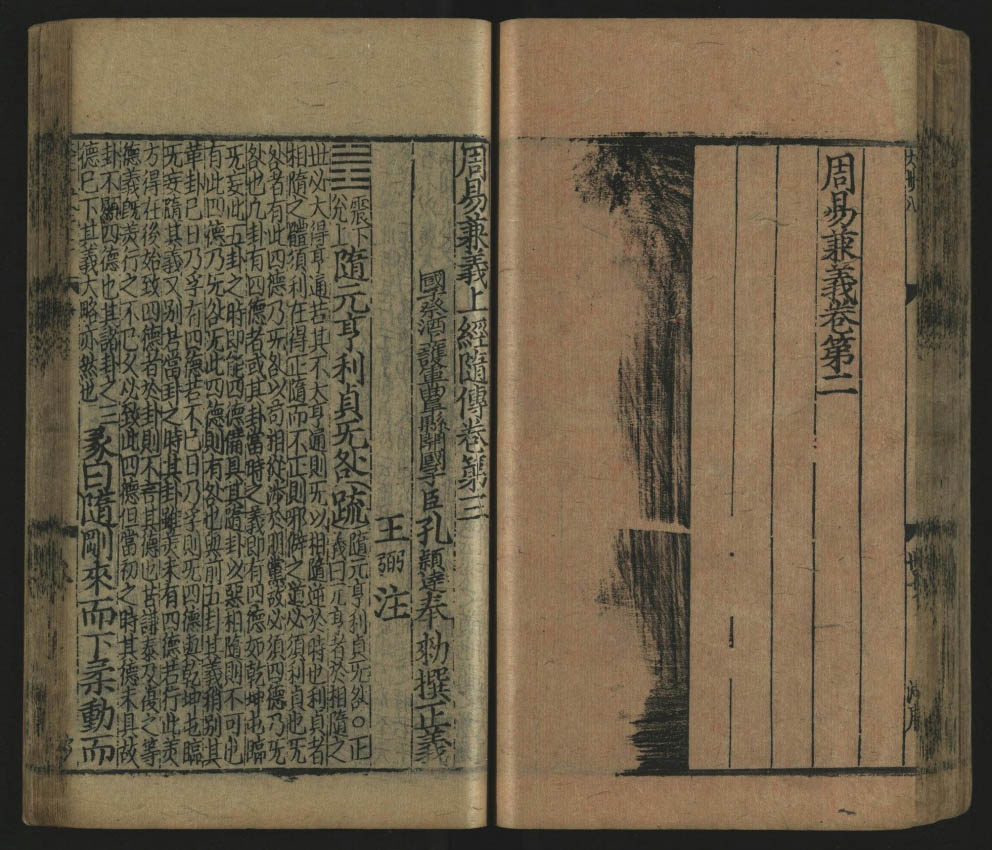 周易兼義卷第二
周易兼義上經隨傳卷第三
國子祭酒上護軍曲阜縣開國子臣孔穎達奉勑撰正義
王弼注
震下兌上隨元亨利貞无咎疏隨元亨利貞无咎○正義曰元亨者於相隨之
世必大得亨通若其不大亨通則无以相隨逆於時也利貞者
相隨之體須利在得正隨而不正則邪僻之道必須利貞也无
咎者有此四德乃无咎以苟相從涉於朋黨故必須四德乃无
咎也凡卦有四德者或其卦當時之義即有四德如乾坤屯臨
无妄此五卦之時即能四德備具其隨卦以惡相隨則不可也
有此四德乃无咎无此四德則有咎也與前五卦其義稍別其
革卦巳日乃孚有四德若不巳日乃孚則无四德與乾坤屯臨
无妄隨其義又別若當卦之時其卦雖美未有四德若行此美
方得在後始致四德者於卦則不言其德也若謙泰及復之等
德義既美行之不巳久必致此四德但當初之時其德未具故
卦不顯四德也其諸卦之三德巳下其義大略亦然也彖曰隨剛來而下柔動而